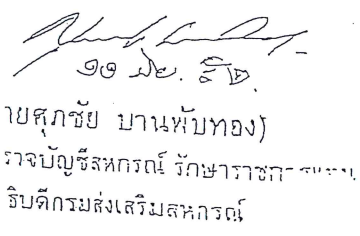 ๑๑ มิย. ๕๒.
ายศุภชัย บานพับทอง)
ราจบัญชีสหกรณ์ รักษาราชก
ธิบดีกรมส่งเสริมสหกรณ์